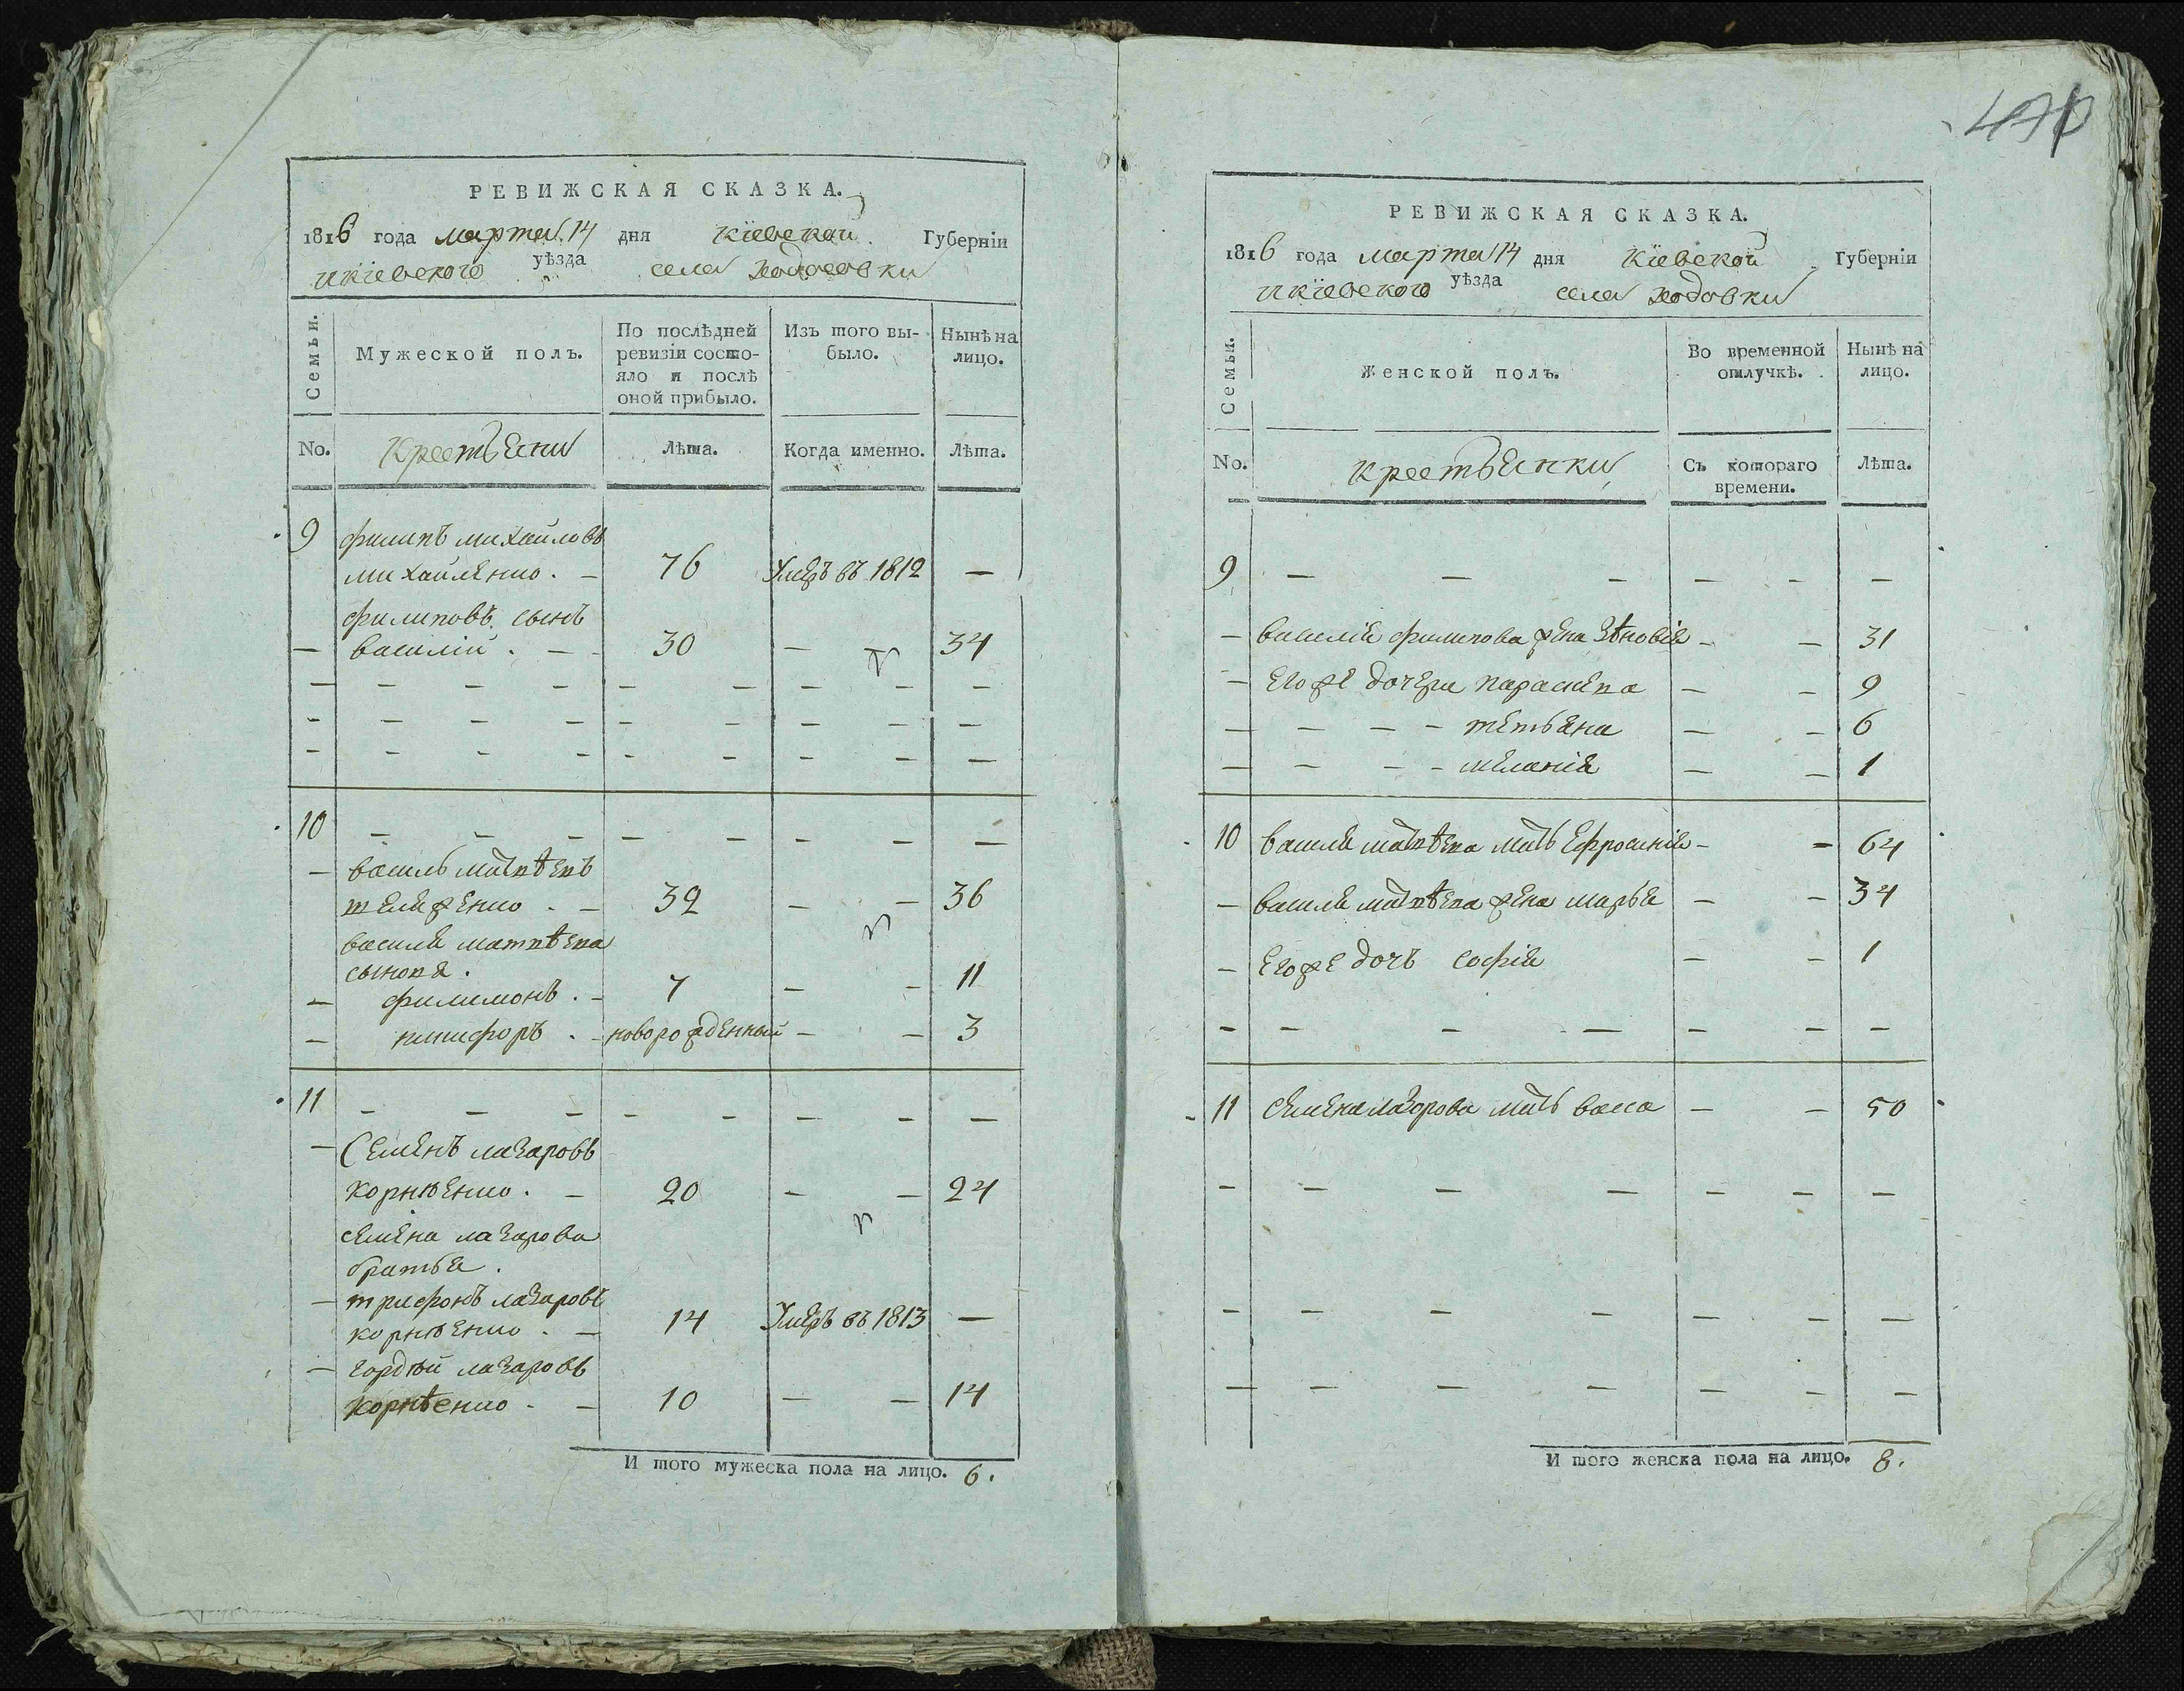 470
РЕВИЖСКАЯ СКАЗКА.
1816 года марта 14 дня Кіевской Губерніи
икіевского уѣзда села Ходосовки
Семьи.
Мужеской полъ.
По послѣдней ревизіи состояло и послѣ оной прибыло.
Изъ того выбыло.
Нынѣ на лицо.
No. Крестьяни Лѣта. Когда именно. Лѣта.
9 филипъ михайловъ
михайленко. – 76 Умеръ въ 1812 —
филиповъ сынъ
— василій . — 30 — 34
— — — — — — — — —
- — — — — — — — —
- - - - - - - - —
10 — — — — — — — —
— василь матвѣевъ
жележенко . – 32 — — 36
василя матвѣева
сыновя.
— филимонъ . – 7 — — 11
— никифоръ . – новорожденный — — 3
11 — — — — — — — —
— Семенъ лазаровъ
корнѣенко . – 20 — — 24
семена лазарова
братья .
— трифонъ лазаровъ
корнѣенко . — 14 Умеръ въ 1813 —
— гордѣй лазаровъ
корнѣенко - – 10 — — 14
И того мужеска пола на лицо. 6.
РЕВИЖСКАЯ СКАЗКА.
1816 года марта 14 дня Кіевской Губерніи
икіевского уѣзда села ходовки
Семьи.
Женской полъ.
Во временной отлучкѣ.
Нынѣ на лицо.
No. крестьянки Съ котораго времени. Лѣта.
9 — — — — — —
— василія филипова жена зѣновія – — 31
— Егоже дочери параскева — – 9
— — — – тетьяна — – 6
— — — – меланія — — 1
10 василя матвѣева мать Ефросинія – – 64
— василя матвѣева жена марья — – 34
— Егоже дочь софія — – 1
- — — — — — —
11 семена лазорова мать васса — — 50
- — — — — — —
— — — — — — —
— — — — — — —
И того женска пола на лицо. 8.